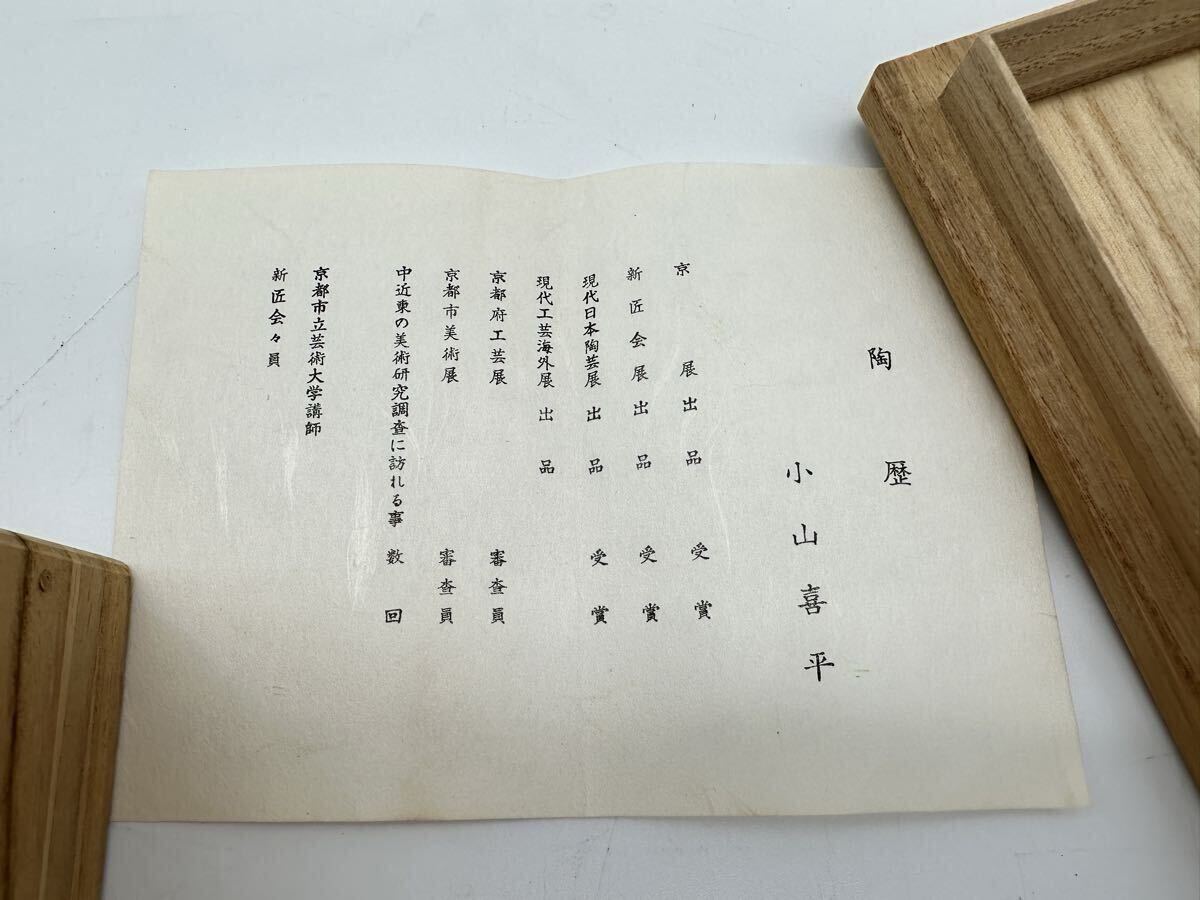 陶歴
小山喜平
京展出品受賞
新匠会展出品受賞
現代日本陶芸展出品受賞
現代工芸海外展出品
京都府工芸展審査員
京都市美術展審査員
中近東の美術研究調査に訪れる事数回
京都市立芸術大学講師
新匠会々員